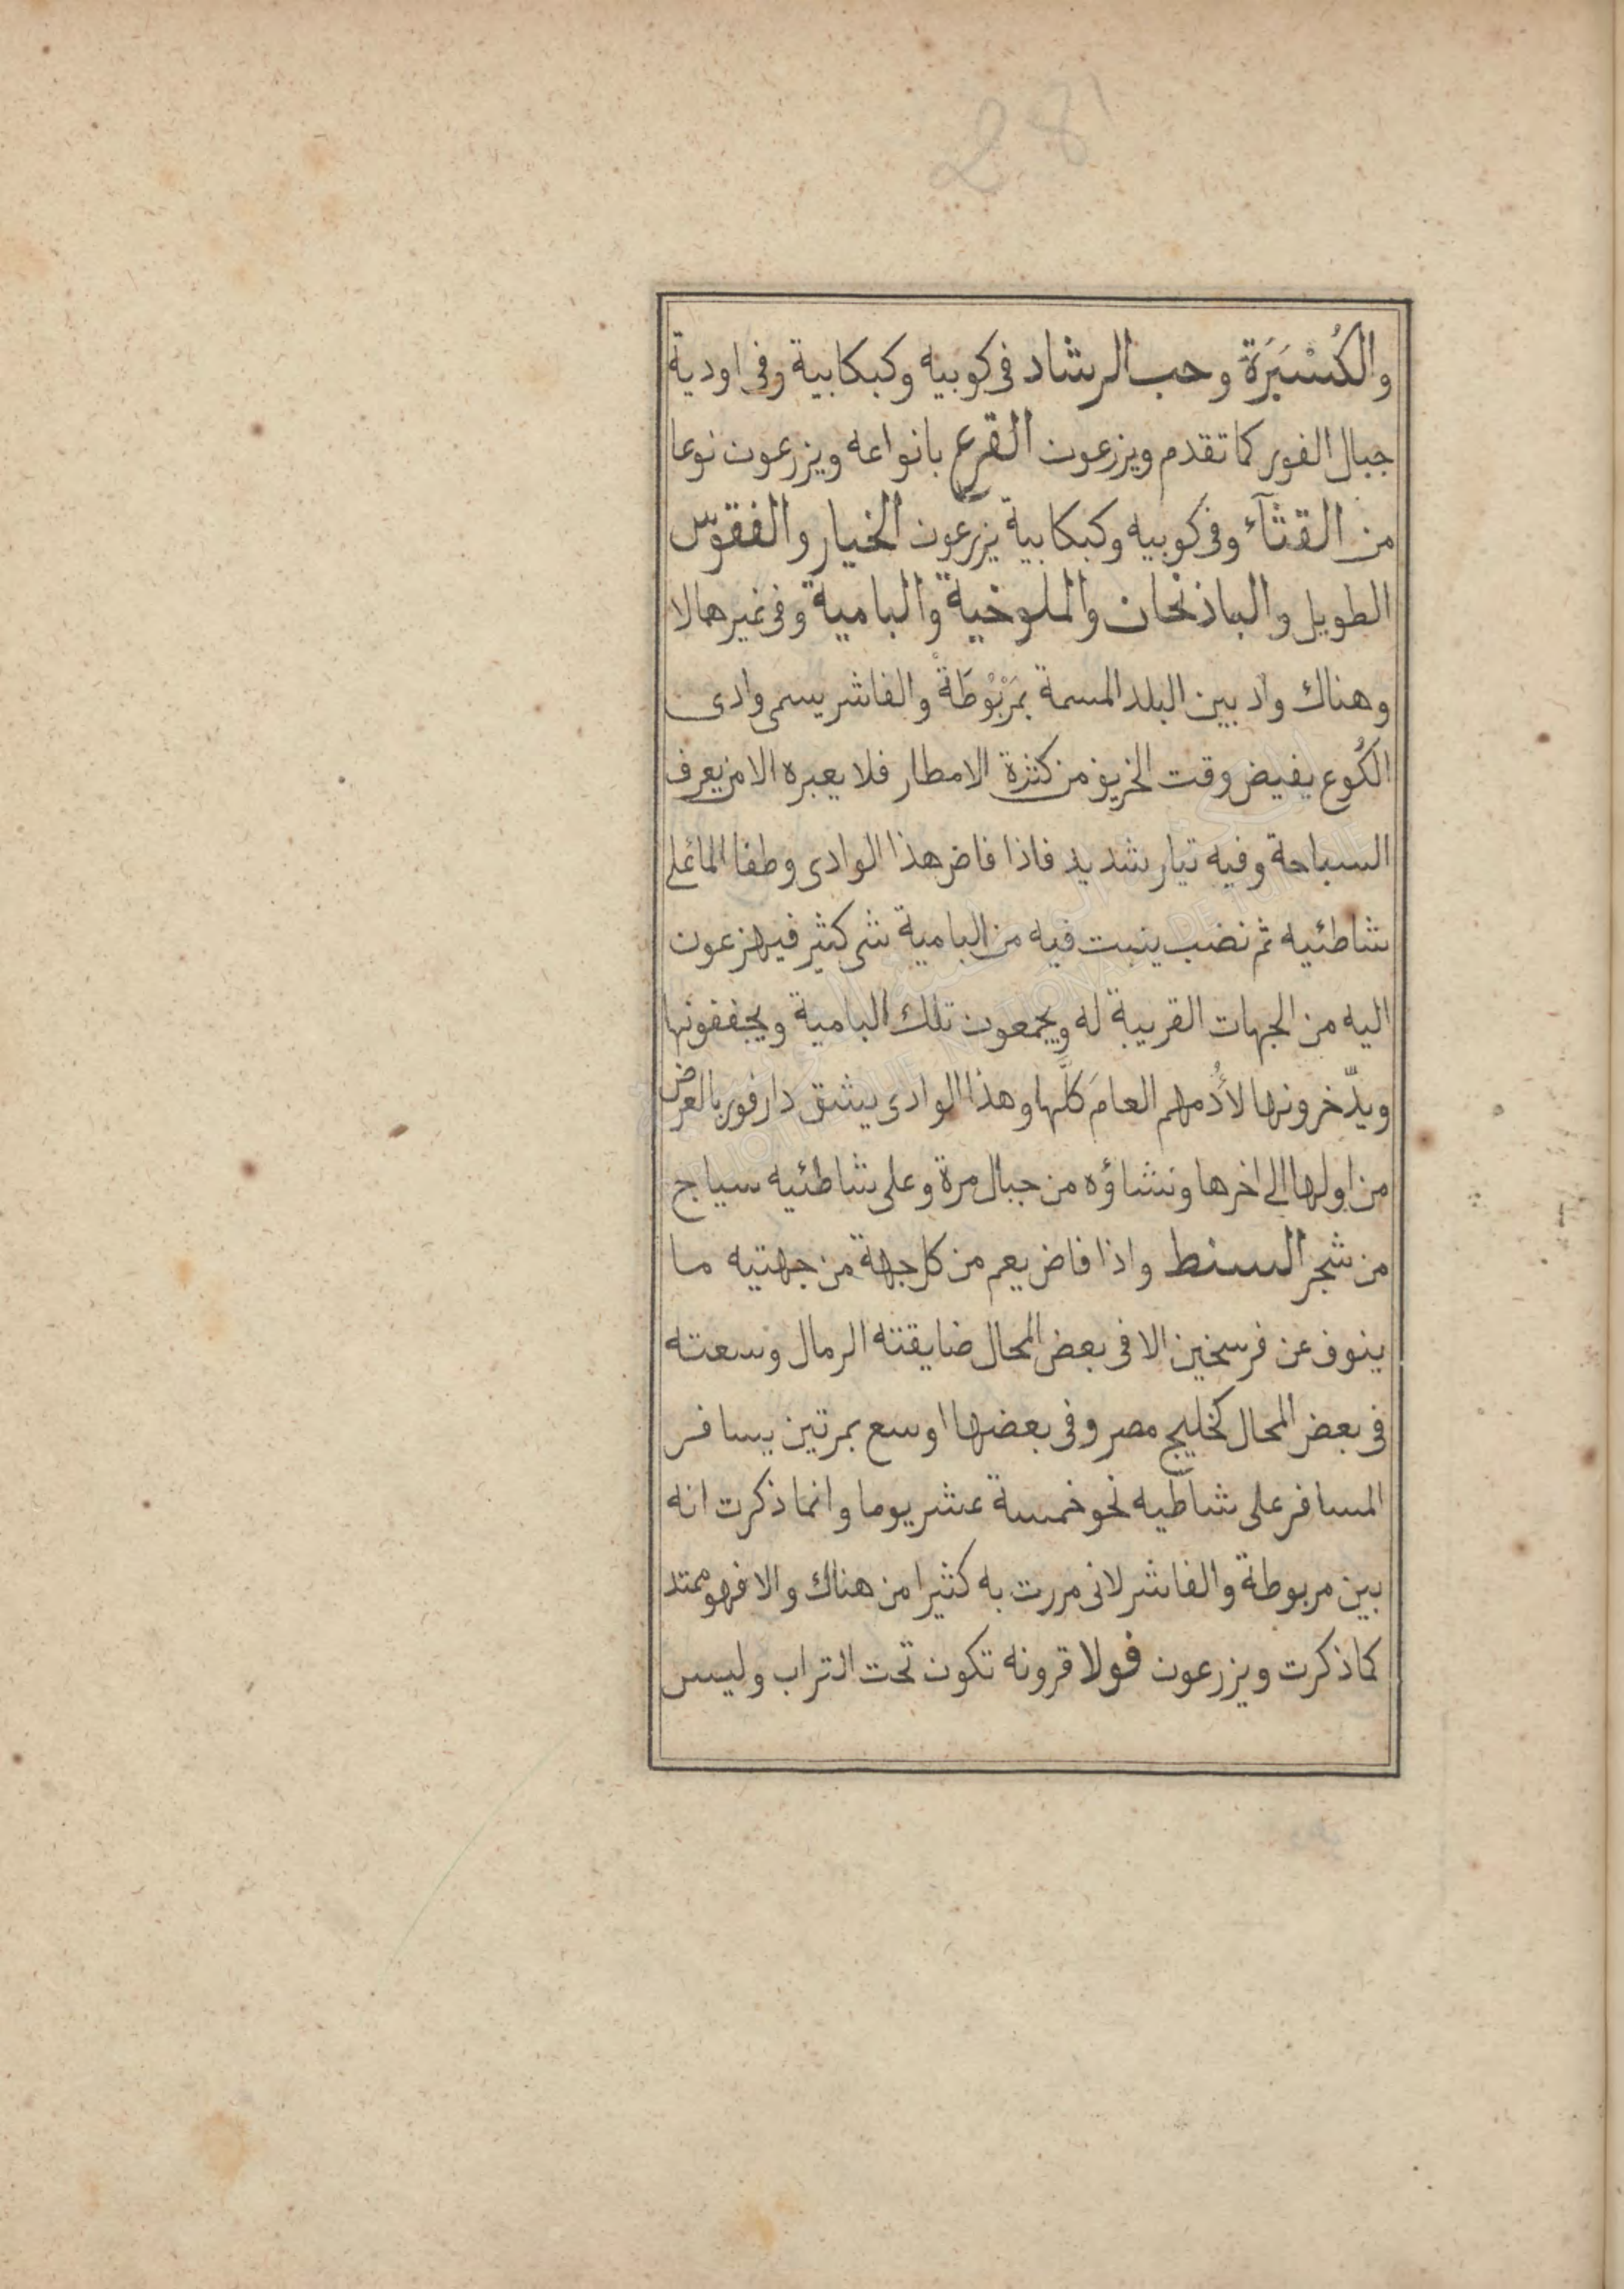 28
والكُسْبَرَة وحب الرشاد فى كوبيه وكبكابية وفى اودية
جبال الفور كما تقدم ويزرعون القرع بانواعه ويزرعون نوعا
من القثآء وفى كوبيه وكبكابية يزرعون الخيار والفقوّس
الطويل والباذنجان والملوخية والبامية وفى غيرهما لا
وهناك واد بين البلد المسمة بمَرْبُوْطَة والفاشر يسمى وادى
الكُوع يفيض وقت الخريف من كثرة الامطار فلا يعبره الا من يعرف
السباحة وفيه تيار شديد فاذا فاض هذا الوادى وطفا الماء على
شاطئيه ثم نضب ينبت فيه من البامية شى كثير فيهرعون
اليه من الجهات القريبة له ويجمعون تلك البامية ويجففونها
ويدّخرونها لأدُمهم العامَ كلَّها وهذا الوادى يشق دارفور بالعرض
من اولها الى اخرها ونشاؤه من جبال مرة وعلى شاطئيه سياج
من شجر السنط واذا فاض يعم من كل جهة من جهتيه ما
ينوف عن فرسخين الا فى بعض المحال ضايقته الرمال وسعته
فى بعض المحال كخليج مصر وفى بعضها اوسع بمرتين يسافر
المسافر على شاطيه نحو خمسة عشر يوما وانما ذكرت انه
بين مربوطة والفاشر لانى مررت به كثيرا من هناك والا فهو ممتد
كما ذكرت ويزرعون فولا قرونه تكون تحت التراب وليس